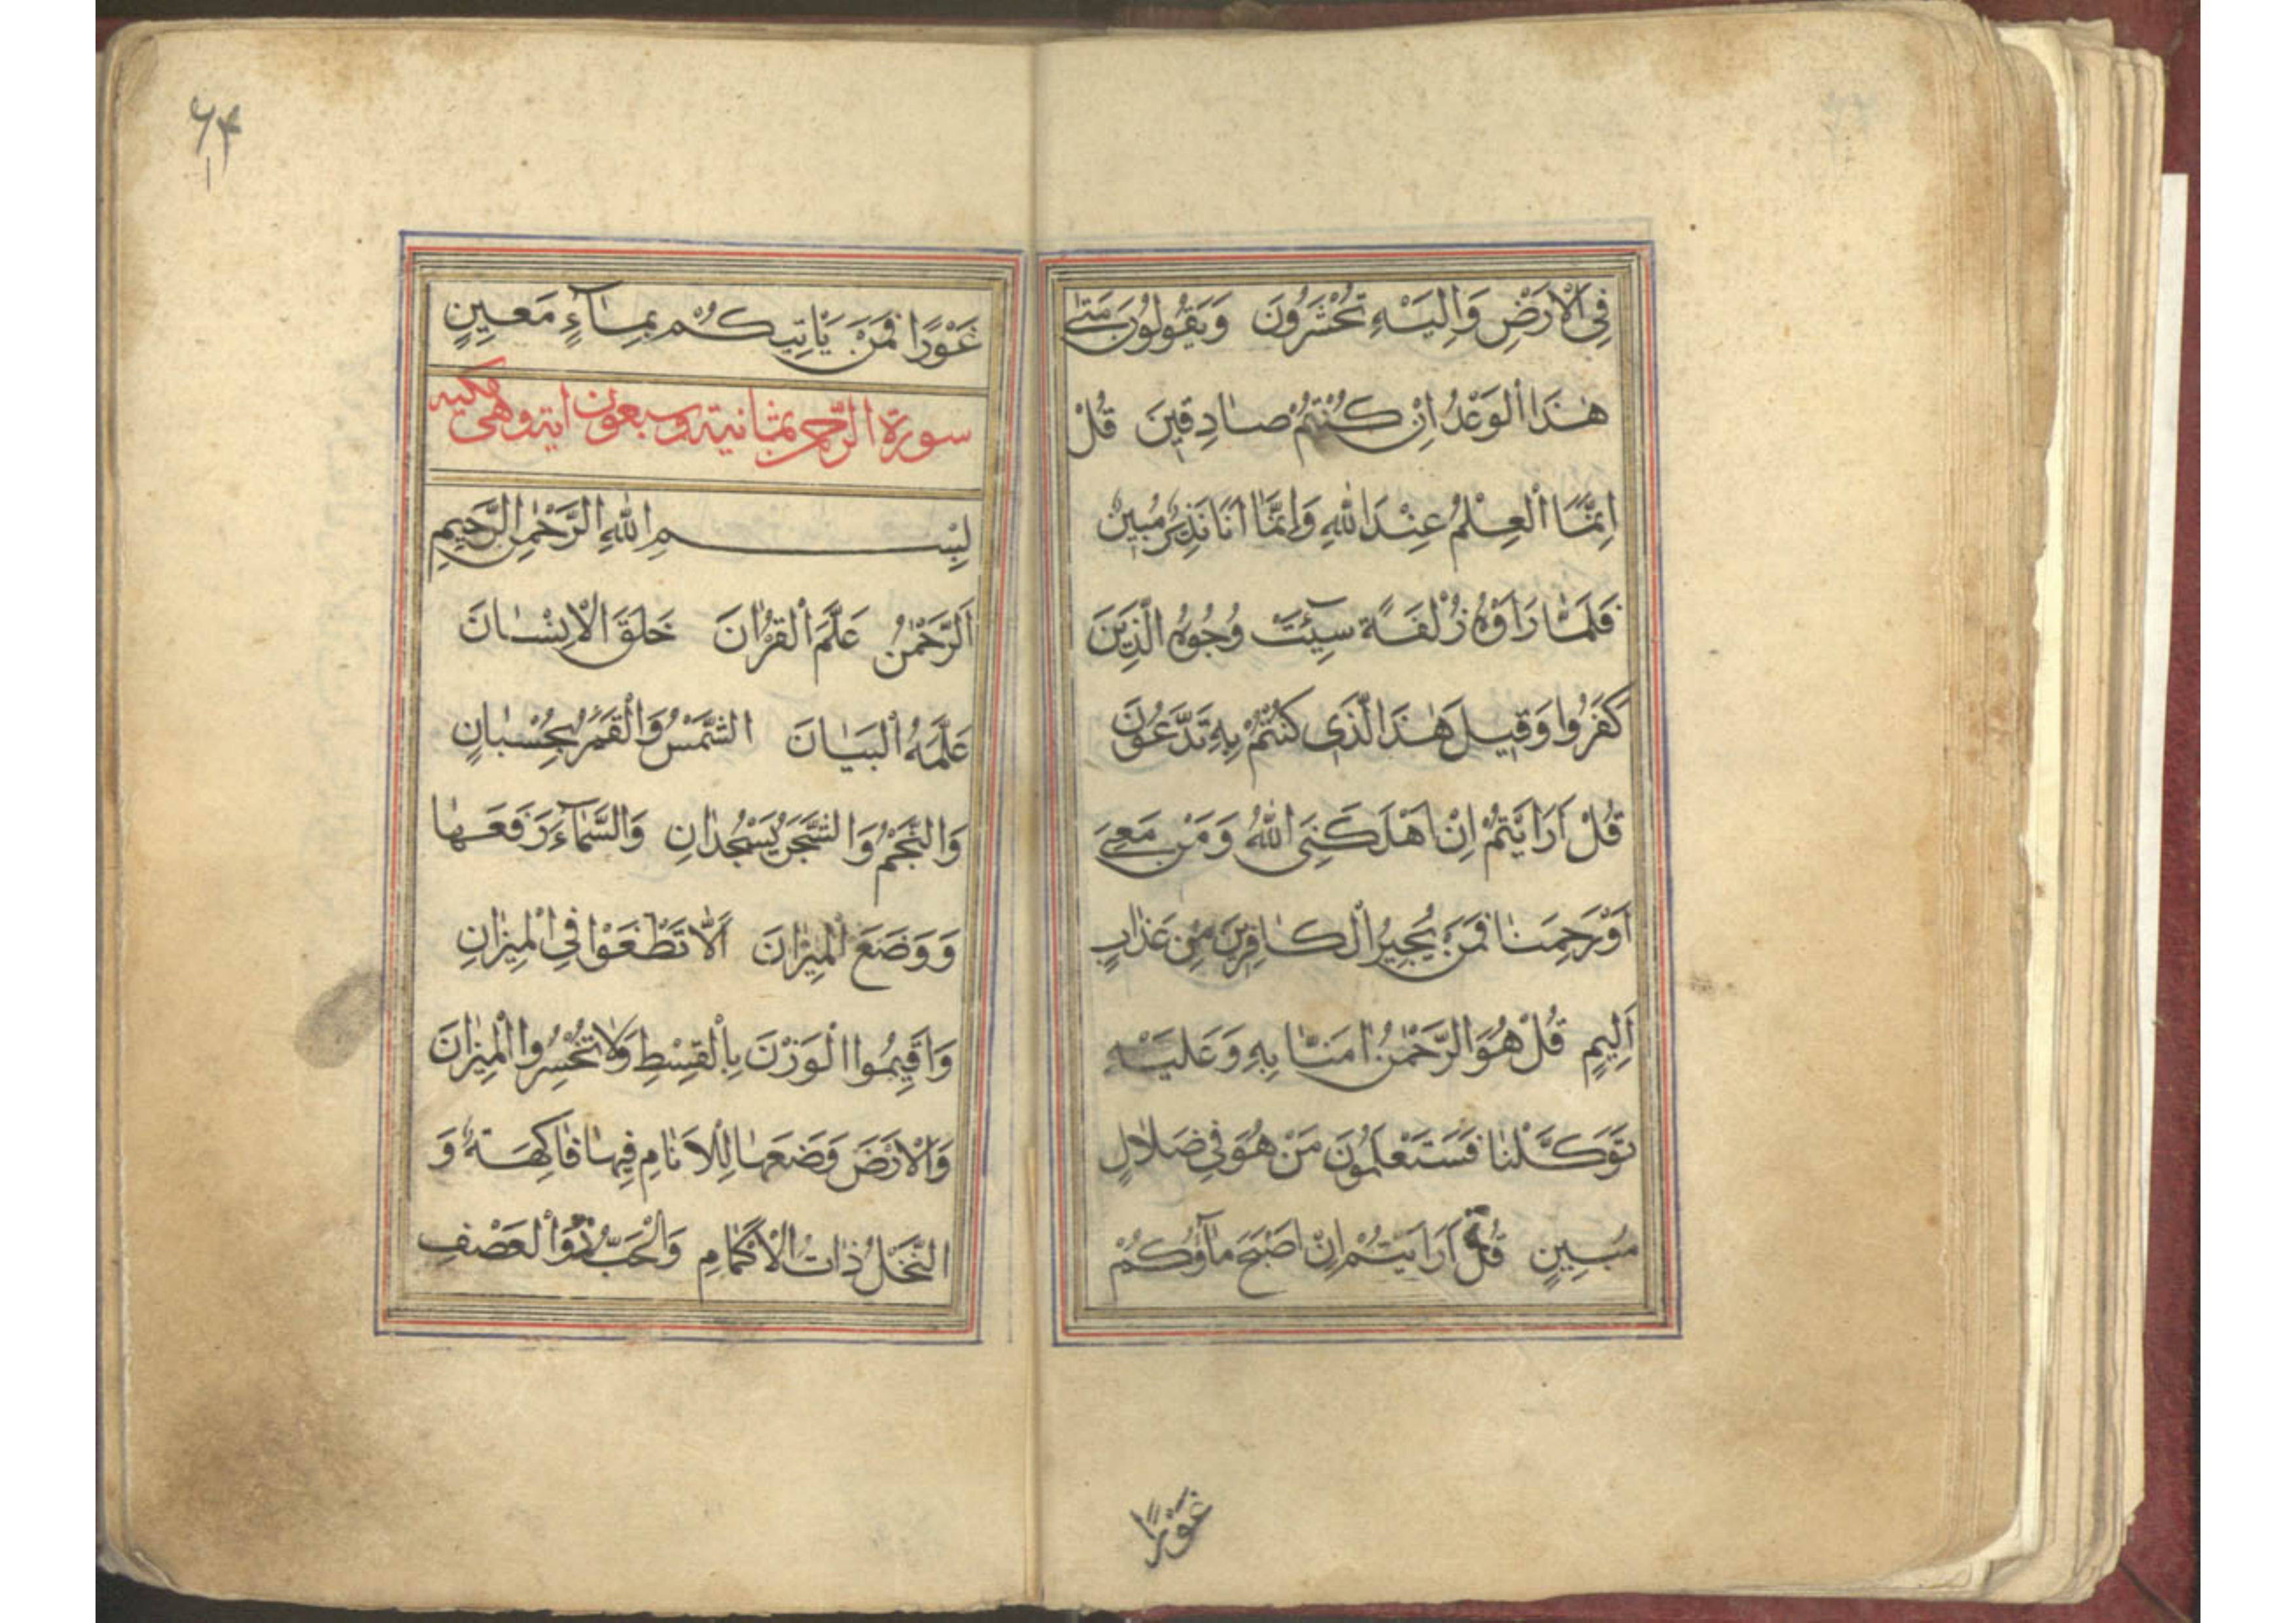 فِي الْاَرْضِ وَاِلَيْهِ تُحْشَرُونَ وَيَقُولُونَ مَتٰى
هٰذَا الْوَعْدُ اِنْ كُنْتُمْ صَادِقِينَ قُلْ
اِنَّمَا الْعِلْمُ عِنْدَ اللّٰهِ وَاِنَّمَا اَنَا نَذِيرٌ مُبِينٌ
فَلَمَّا رَاَوْهُ زُلْفَةً سِيٓئَتْ وُجُوهُ الَّذِينَ
كَفَرُوا وَقِيلَ هٰذَا الَّذِى كُنْتُمْ بِهِ تَدَّعُونَ
قُلْ اَرَاَيْتُمْ اِنْ اَهْلَكَنِىَ اللّٰهُ وَمَنْ مَعِىَ
اَوْ رَحِمَنَا فَمَنْ يُجِيرُ الْكَافِرِينَ مِنْ عَذَابٍ
اَلِيمٍ قُلْ هُوَ الرَّحْمٰنُ اٰمَنَّا بِهِ وَعَلَيْهِ
تَوَكَّلْنَا فَسَتَعْلَمُونَ مَنْ هُوَ فِي ضَلَالٍ
مُبِينٍ قُلْ اَرَاَيْتُمْ اِنْ اَصْبَحَ مَآؤُكُمْ
غَوْرًا
٦٤
غَوْرًا فَمَنْ يَاْتِيكُمْ بِمَآءٍ مَعِينٍ
سورة الرّحمن ثمانية وسبعون اية وهى مكيه
بِسْمِ اللّٰهِ الرَّحْمٰنِ الرَّحِيمِ
اَلرَّحْمٰنُ عَلَّمَ الْقُرْاٰنَ خَلَقَ الْاِنْسَانَ
عَلَّمَهُ الْبَيَانَ الشَّمْسُ وَالْقَمَرُ بِحُسْبَانٍ
وَالنَّجْمُ وَالشَّجَرُ يَسْجُدَانِ وَالسَّمَآءَ رَفَعَهَا
وَوَضَعَ الْمِيزَانَ اَلَّا تَطْغَوْا فِي الْمِيزَانِ
وَاَقِيمُوا الْوَزْنَ بِالْقِسْطِ وَلَا تُخْسِرُوا الْمِيزَانَ
وَالْاَرْضَ وَضَعَهَا لِلْاَنَامِ فِيهَا فَاكِهَةٌ وَ
النَّخْلُ ذَاتُ الْاَكْمَامِ وَالْحَبُّ ذُو الْعَصْفِ